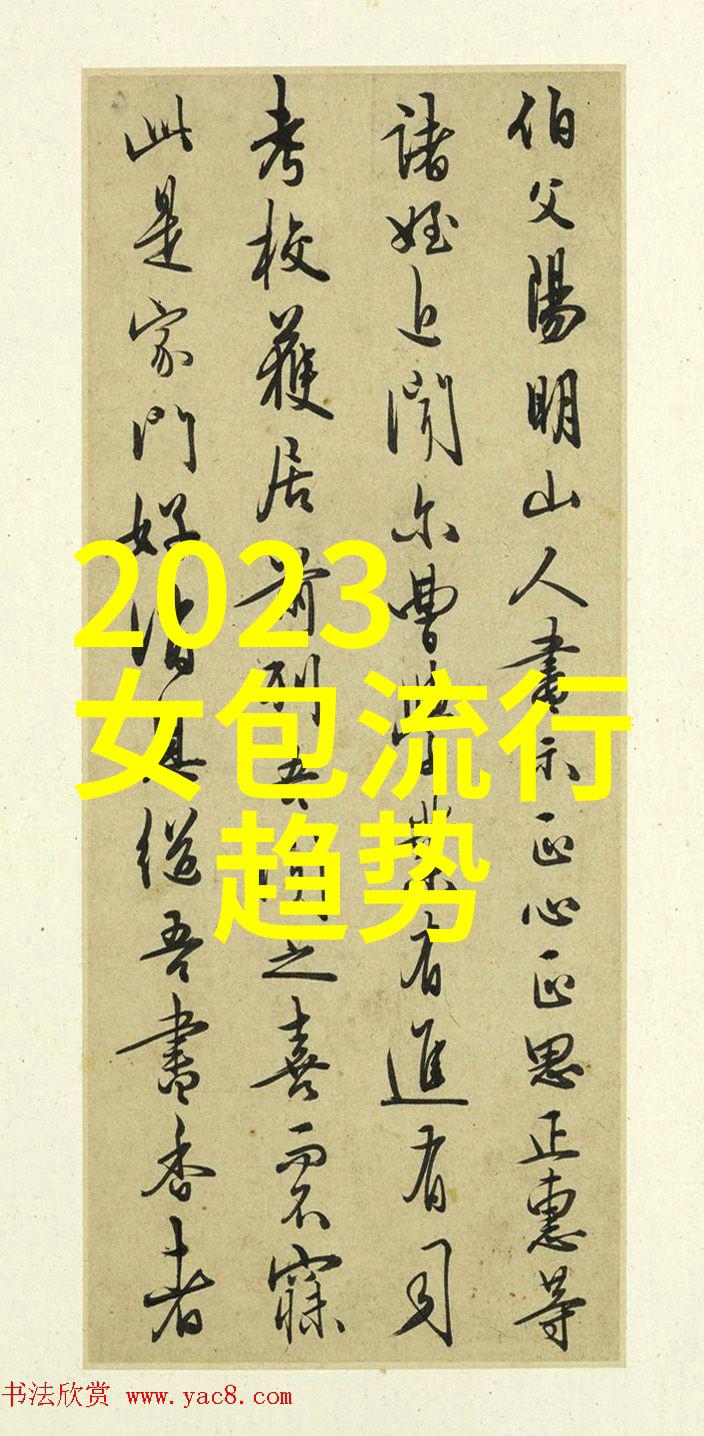 伯父陽明山人書示正心正思正惠等
諸姪近聞尔曹學業有進有司
考校獲居前列吾聞之喜而不寐
此是家門好消息繼吾書香者
2023
女包流行
趋势
书法欣赏 www.yac8.com